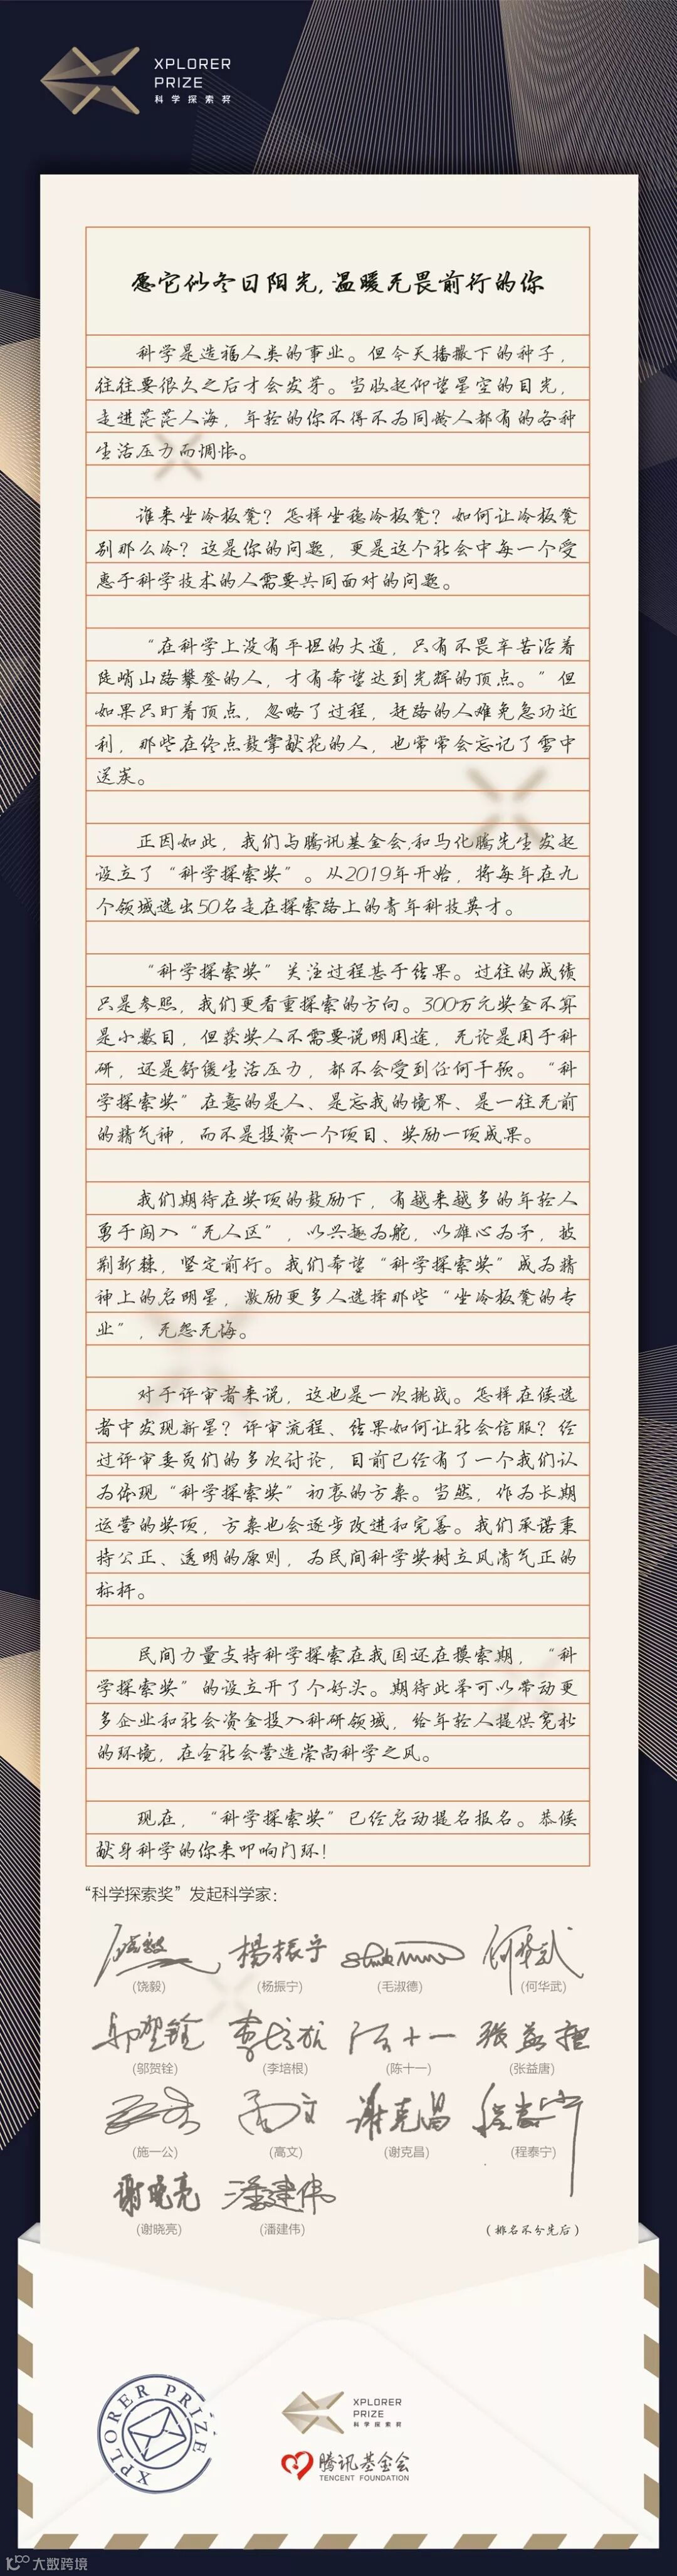 XPLORER
PRIZE
科学探索奖
愿它似冬日阳光，温暖无畏前行的你
科学是造福人类的事业。但今天播撒下的种子，
往往要很久之后才会发芽。当收起仰望星空的目光，
走进茫茫人海，年轻的你不得不为同龄人都有的各种
生活压力而惆怅。
谁来坐冷板凳？怎样坐稳冷板凳？如何让冷板凳
别那么冷？这是你的问题，更是这个社会中每一个受
惠于科学技术的人需要共同面对的问题。
“在科学上没有平坦的大道，只有不畏辛苦沿着
陡峭山路攀登的人，才有希望达到光辉的顶点。”但
如果只盯着顶点，忽略了过程，赶路的人难免急功近
利，那些在终点鼓掌献花的人，也常常会忘记了雪中
送炭。
正因如此，我们与腾讯基金会和马化腾先生发起
设立了“科学探索奖”。从2019年开始，将每年在九
个领域选出50名走在探索路上的青年科技英才。
“科学探索奖”关注过程甚于结果。过往的成绩
只是参照，我们更看重探索的方向。300万元奖金不算
是小数目，但获奖人不需要说明用途，无论是用于科
研，还是舒缓生活压力，都不会受到任何干预。“科
学探索奖”在意的是人、是忘我的境界、是一往无前
的精气神，而不是投资一个项目、奖励一项成果。
我们期待在奖项的鼓励下，有越来越多的年轻人
勇于闯入“无人区”，以兴趣为舵，以雄心为矛，披
荆斩棘，坚定前行。我们希望“科学探索奖”成为精
神上的启明星，激励更多人选择那些“坐冷板凳的专
业”，无怨无悔。
对于评审者来说，这也是一次挑战。怎样在候选
者中发现新星？评审流程、结果如何让社会信服？经
过评审委员们的多次讨论，目前已经有了一个我们认
为体现“科学探索奖”初衷的方案。当然，作为长期
运营的奖项，方案也会逐步改进和完善。我们承诺秉
持公正、透明的原则，为民间科学奖树立风清气正的
标杆。
民间力量支持科学探索在我国还在摸索期，“科
学探索奖”的设立开了个好头。期待此举可以带动更
多企业和社会资金投入科研领域，给年轻人提供宽松
的环境，在全社会营造崇尚科学之风。
现在，“科学探索奖”已经启动提名报名。恭候
献身科学的你来叩响门环！
“科学探索奖”发起科学家：
饶毅 楊振宁 何华武
(饶毅) (杨振宁) (毛淑德) (何华武)
邬贺铨 李培根 陈十一 張益唐
(邬贺铨) (李培根) (陈十一) (张益唐)
高文 谢克昌 程泰宁
(施一公) (高文) (谢克昌) (程泰宁)
谢晓亮 潘建伟
(谢晓亮) (潘建伟) (排名不分先后)
XPLORER PRIZE
XPLORER
PRIZE
科学探索奖
腾讯基金会
TENCENT FOUNDATION
大数跨境